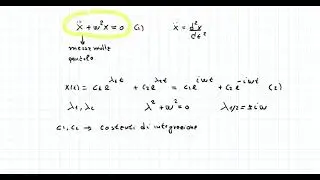 ẍ + ω²x = 0 (1) ẍ = d²x/dt²
↓
massa molla
pendolo
x(t) = c₁e^{λ₁t} + c₂e^{λ₂t} = c₁e^{iωt} + c₂e^{-iωt} (2)
λ₁, λ₂ λ² + ω² = 0 λ₁/₂ = ±iω
c₁, c₂ → costanti di integrazione